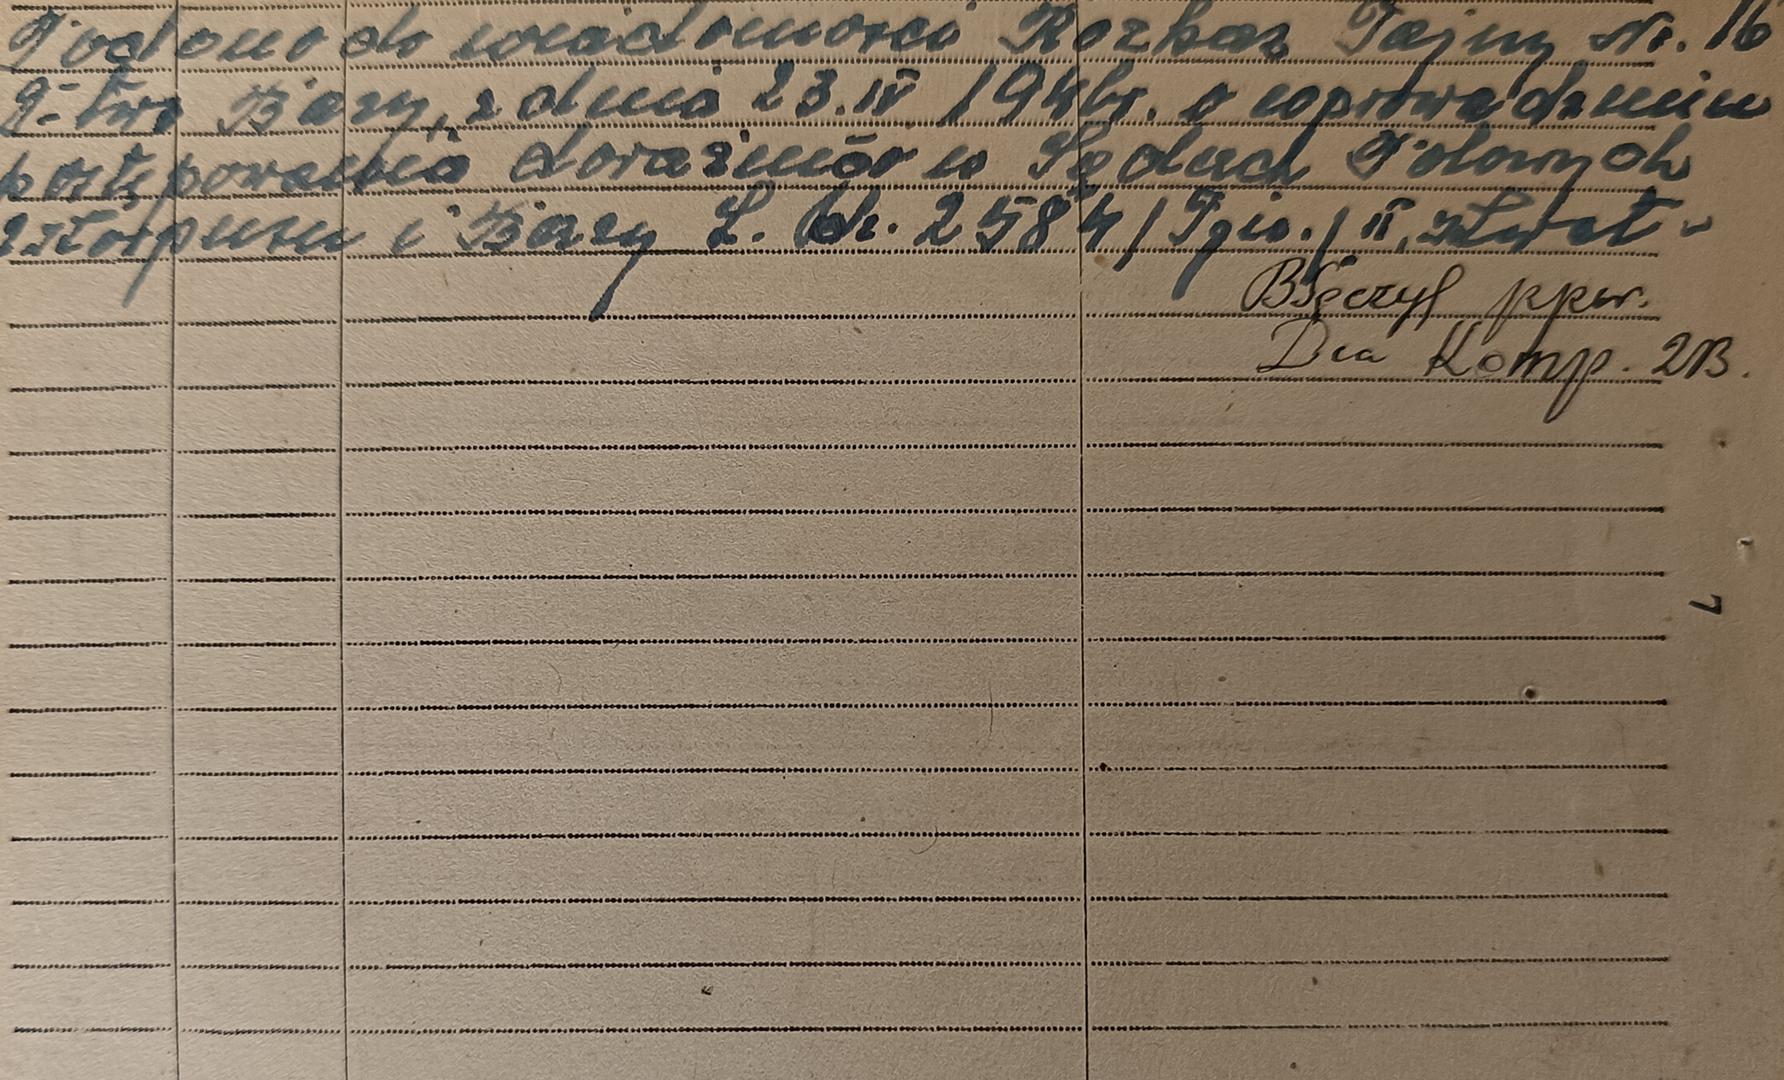 Podano do wiadomości Rozkaz Tajny Nr. 16
D-twa Bazy, z dnia 23.IV 1944r. o wprowadzeniu
postępowania doraźnego w Sądach Polowych
2 Korpusu i Bazy L. dz. 2584/Tjn./II,
ppor.
Dca Komp. 2B.